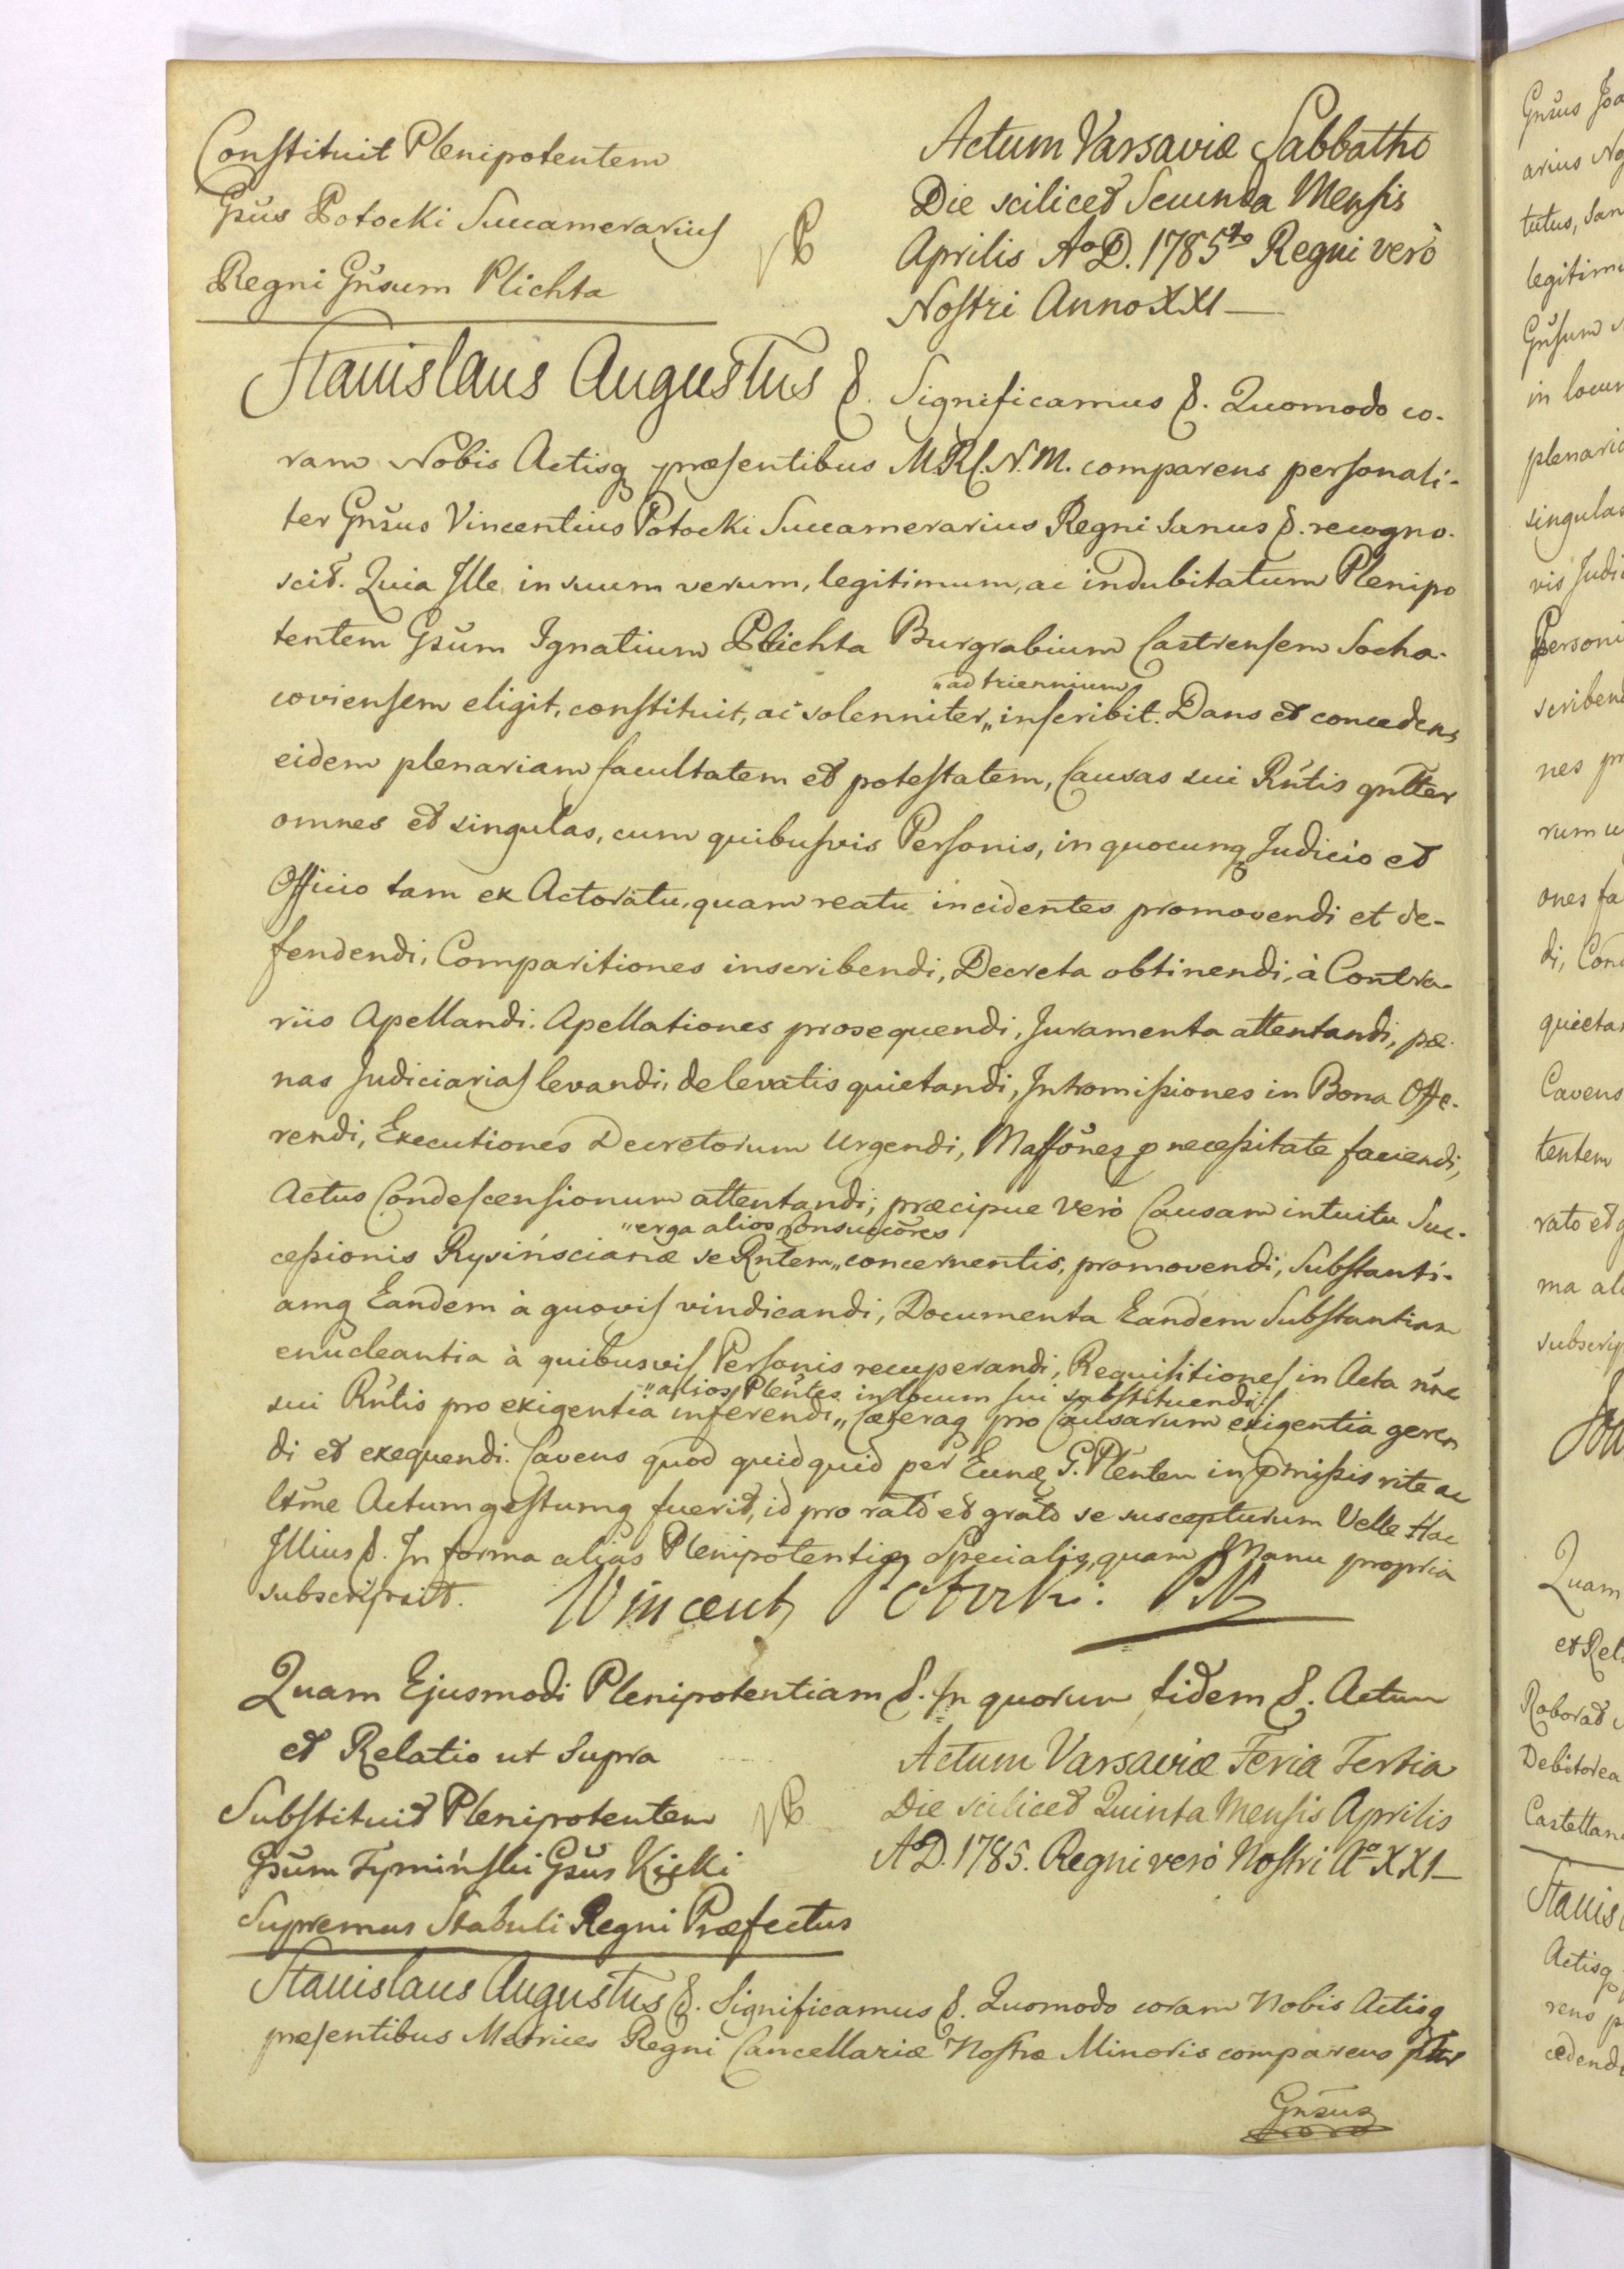 Constituit Plenipotentem
Gsus Potocki Succamerarius
Regni Gnsum Plichta
Actum Varsaviæ Sabbatho
Die scilicet Secunda Mensis
Aprilis Ao D. 1785to Regni verò
Nostri Anno XXI
Stanislaus Augustus &. Significamus &. Quomodo co-
ram Nobis Actisq præsentibus MRC.N.M. comparens personali-
ter Gnsus Vincentius Potocki Succamerarius Regni Sanus &. recogno-
scit. Quia Ille in suum verum, legitimum, ac indubitatum Plenipo
tentem Gsum Ignatium Plichta Burgrabium Castrensem Socha-
coviensem eligit, constituit, ac solenniter „ad triennium„ inscribit. Dans et concedens
eidem plenariam facultatem et potestatem, Causas sui Rntis gnltter
omnes et singulas, cum quibusvis Personis, in quocunq Judicio et
Officio tam ex Actoratu, quam reatu incidentes promovendi et de-
fendendi, Comparitiones inscribendi, Decreta obtinendi, à Contra-
riis Apellandi. Apellationes prosequendi, Juramenta attentandi, pæ-
nas Judiciarias levandi, de levatis quietandi, Intromissiones in Bona Offe-
rendi, Executiones Decretorum Urgendi, p necessitate faciendi,
Actus Condescensionum attentandi; præcipue verò Causam intuitu Suc-
cessionis Rysińscianæ se Rntem „erga alios Consuccores„ concernentis, promovendi, Substanti-
amq Eandem à quovis vindicandi, Documenta Eandem Substantiam
enucleantia à quibusvis Personis recuperandi, Requisitiones in Acta
sui Rntis pro exigentia inferendi „alios Plentes in locum sui substituendi„ Cæteraq pro Causarum exigentia geren
di et exequendi. Cavens quod quidquid per Eunq G. Plenten in pmissis rite ac
ltime Actum gestumq fuerit, id pro rato et grato se suscepturum Velle Hac
Illius &. In forma alias Plenipotentiæ Specialis, quam Manu propria
subscripsit. Wincenty Potocki. PK
Quam Ejusmodi Plenipotentiam &. In quorum fidem &. Actum
et Relatio ut Supra
Substituit Plenipotentem
Gsum Tymiński Gsus Kicki
Supremus Stabuli Regni Præfectus
Actum Varsaviæ Feria Tertia
Die scilicet Quinta Mensis Aprilis
AD. 1785. Regni verò Nostri Ao XXI
Stanislaus Augustus &. Significamus &. Quomodo coram Nobis Actisq
præsentibus Metrices Regni Cancellariæ Nostræ Minoris comparens pltter
Gnsus